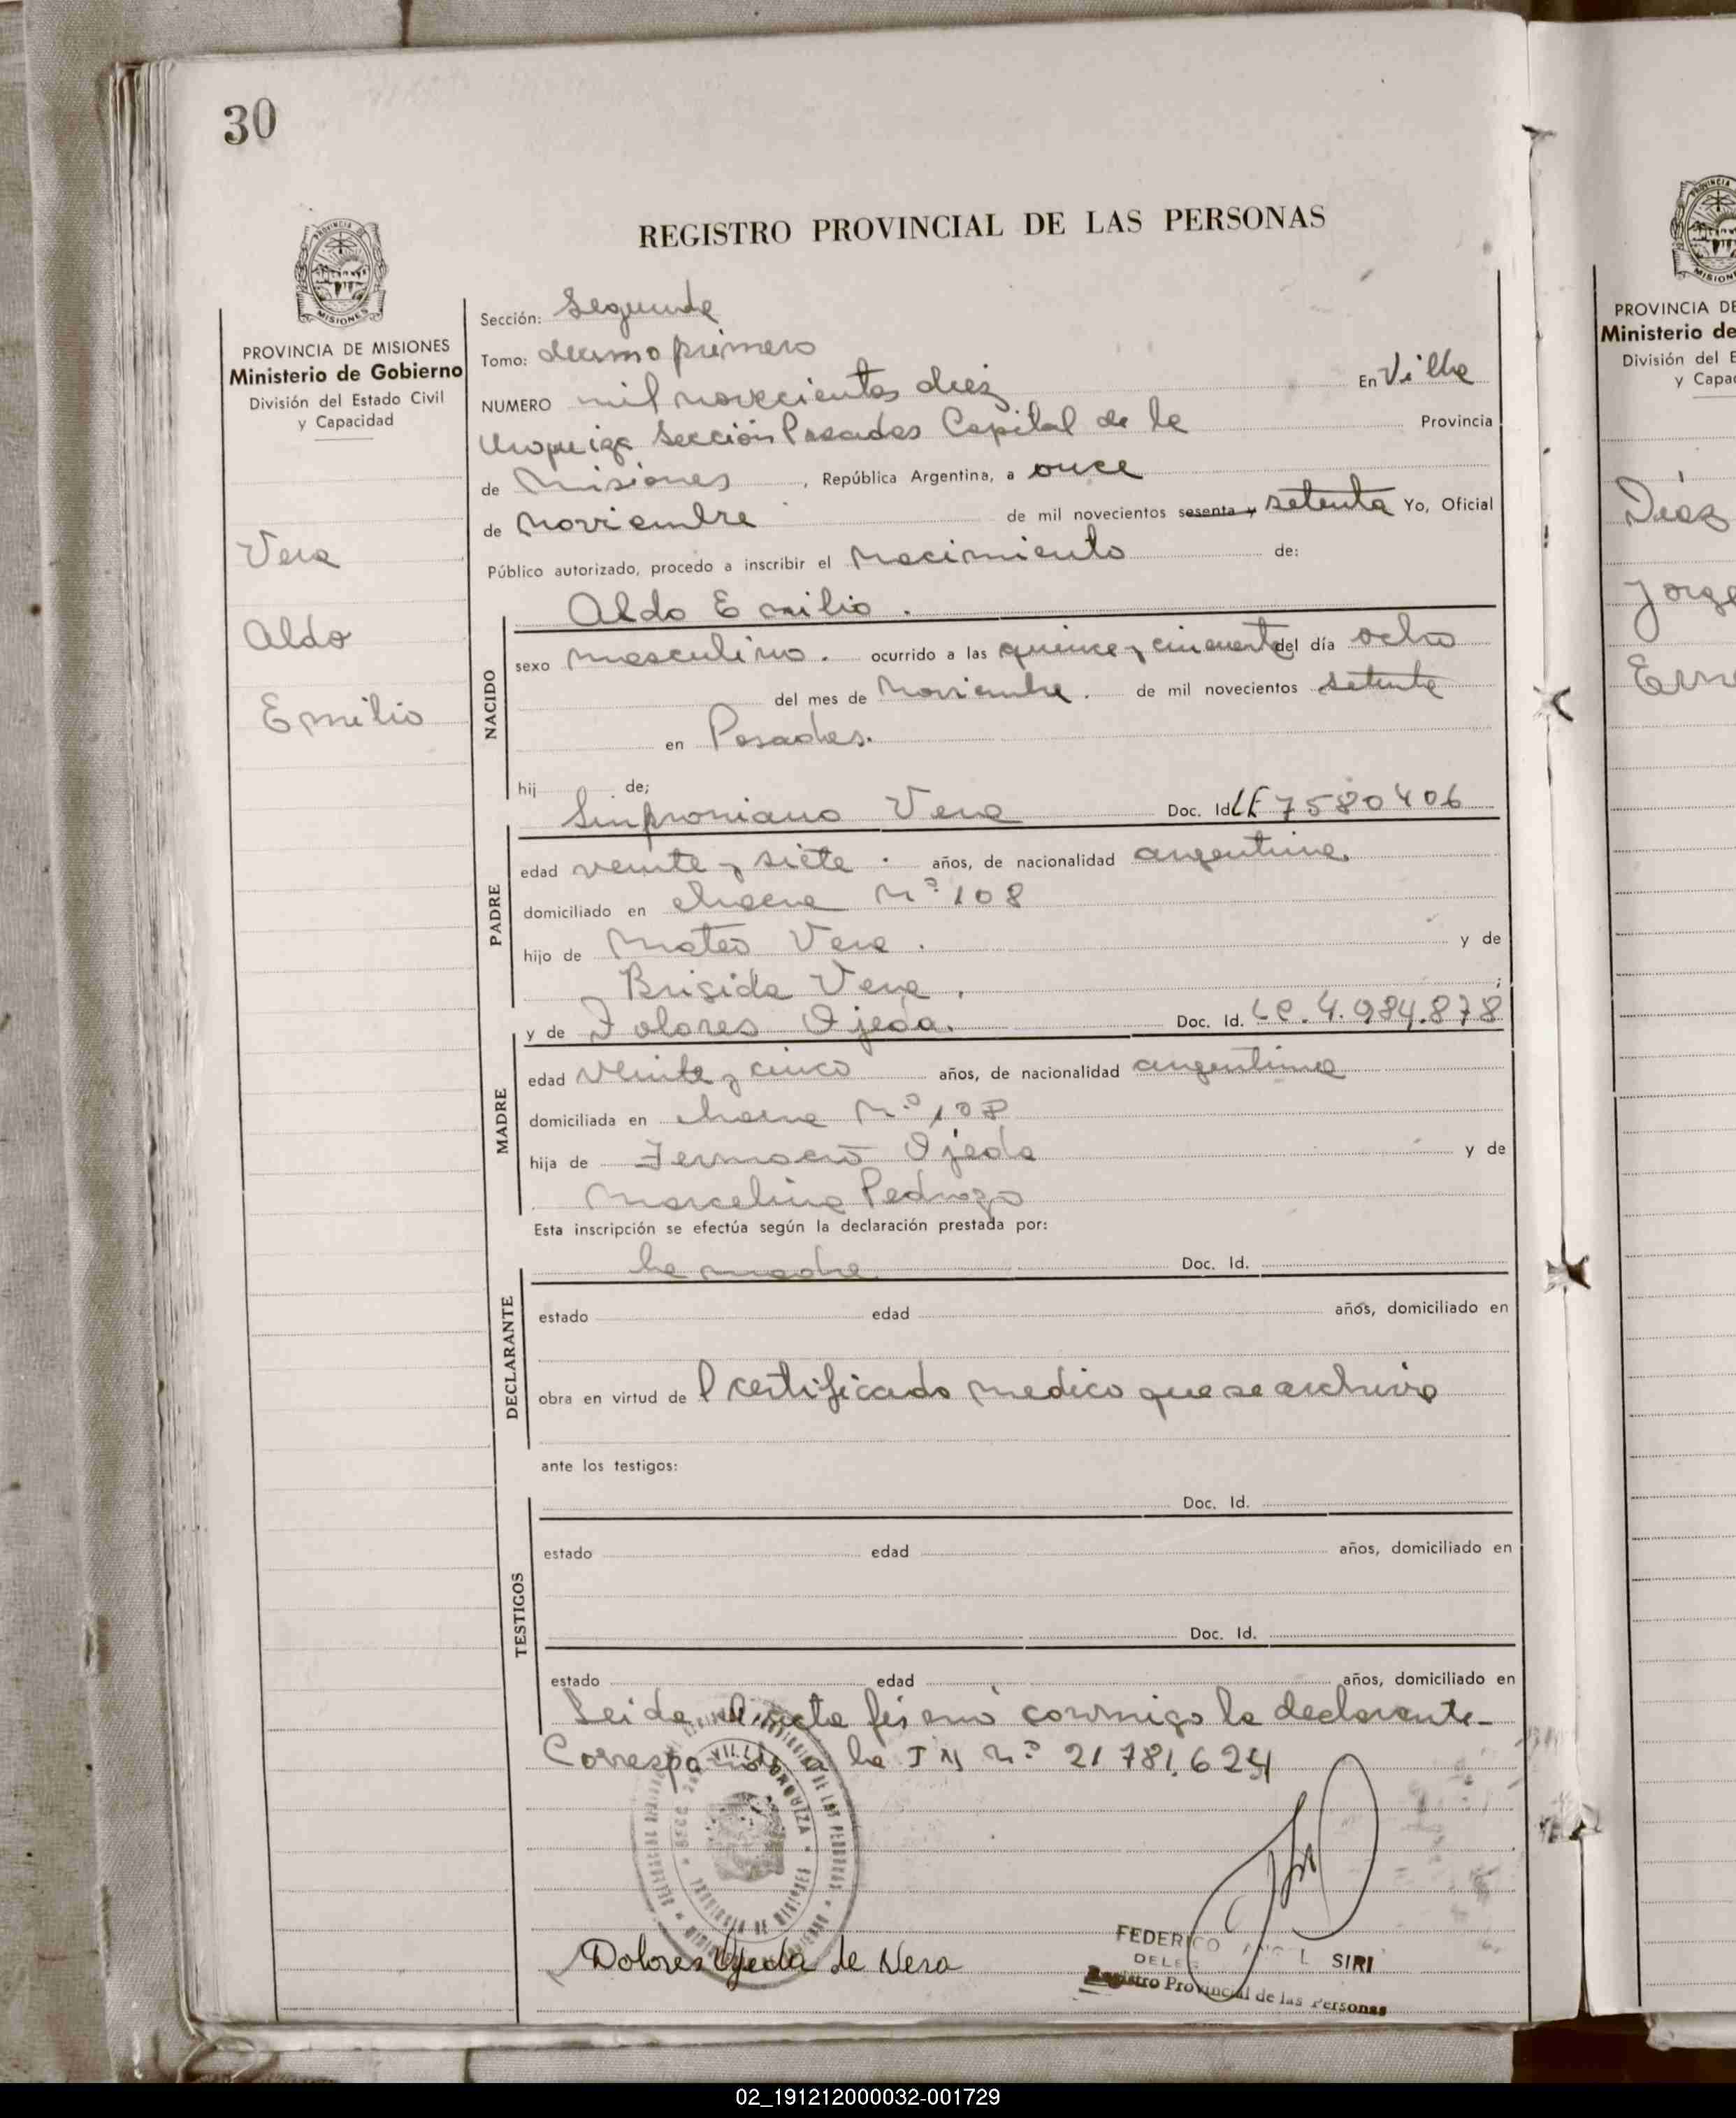 30
REGISTRO PROVINCIAL DE LAS PERSONAS
PROVINCIA DE MISIONES
Ministerio de Gobierno
División del Estado Civil
y Capacidad
Vera
Aldo
Emilio
Sección: Segunda
Tomo: decimo primero
NUMERO mil novecientos diez En Villa
Urquiza Sección Posadas Capital de la Provincia
de Misiones, República Argentina, a once
de noviembre de mil novecientos sesenta y setenta Yo, Oficial
Público autorizado, procedo a inscribir el nacimiento de:
Aldo Emilio.
NACIDO
sexo masculino. ocurrido a las quince y cincuenta del día ocho
del mes de noviembre. de mil novecientos setenta
en Posadas.
hij de;
Sinproniano Vera Doc. Id. LE 7580406
PADRE
edad veinte y siete. años, de nacionalidad argentina.
domiciliado en chacra Nº 108
hijo de Mateo Vera. y de
Brigida Vera.;
y de Dolores Ojeda. Doc. Id. LC. 4.984.878
MADRE
edad veinte y cinco años, de nacionalidad argentina
domiciliada en chacra Nº 108
hija de Ojeda y de
Marcelina Pedrozo
Esta inscripción se efectúa según la declaración prestada por:
la madre Doc. Id.
DECLARANTE
estado edad años, domiciliado en
obra en virtud de l certificado medico que se archiva
ante los testigos:
Doc. Id.
TESTIGOS
estado edad años, domiciliado en
Doc. Id.
estado edad años, domiciliado en
Leida el acta firmó conmigo la declarante-
Corresponde a la Nº 21781.624
VILLA URQUIZA
PROVINCIA DE MISIONES
Dolores Ojeda de Vera
FEDERICO SIRI
Registro Provincial de las Personas
PROVINCIA DE
Ministerio de
División del E
y Capac
Díaz
Jorge
02_191212000032-001729